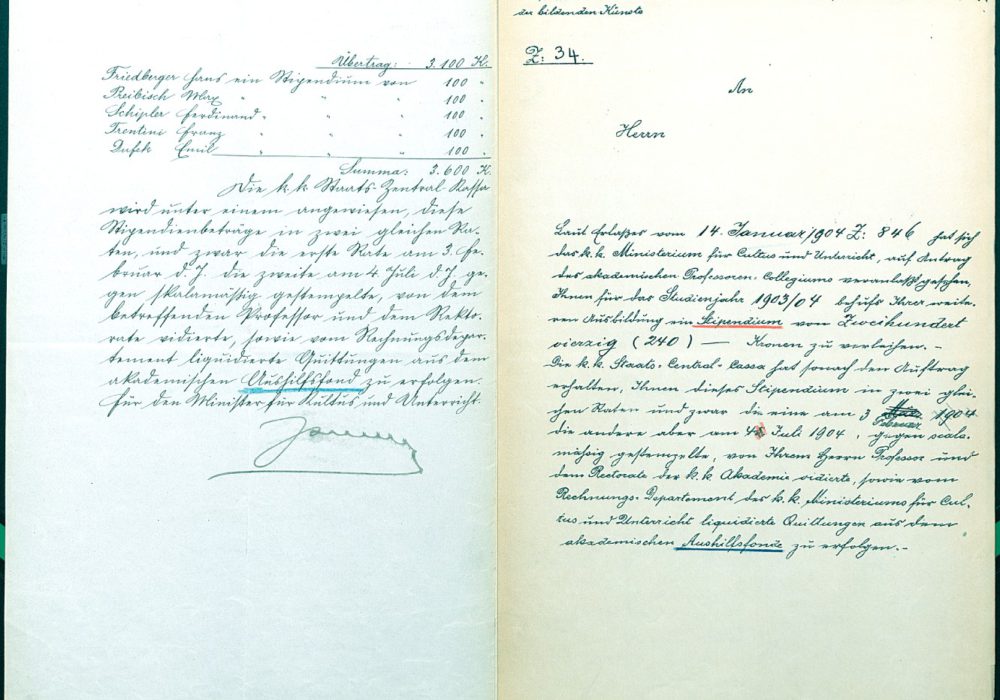 Übertrag: 3.100 K.
Friedberger Hans ein Stipendium von 100 "
Preibisch Max " " " 100 "
Schipler Ferdinand " " " 100 "
Trentini Franz " " " 100 "
Dufek Emil " " " 100 "
Summa: 3.600 K.
Die k. k. Staats-Zentral-Kassa
wird unter einem angewiesen, diese
Stipendienbeträge in zwei gleichen Ra-
ten, und zwar die erste Rate am 3. Fe-
bruar d. J. die zweite am 4 Juli d. J. ge-
gen skalamässig gestempelte, von dem
betreffenden Professor und dem Rekto-
rate vidierte, sowie vom Rechnungsdepar-
tement liquidierte Quittungen aus dem
akademischen Aushilfsfond zu erfolgen.
Für den Minister für Kultus und Unterricht:
der bildenden Künste
Z: 34.
An
Herrn
Laut Erlaßes vom 14. Januar 1904 Z: 846 hat sich
das k. k. Ministerium für Cultus und Unterricht, auf Antrag
des akademischen Professoren-Collegiums veranlaßt gesehen,
Ihnen für das Studienjahr 1903/04 behufs Ihrer weite-
ren Ausbildung ein Stipendium von Zweihundert
vierzig (240) — Kronen zu verleihen.-
Die k. k. Staats-Central-Cassa hat sonach den Auftrag
erhalten, Ihnen dieses Stipendium in zwei glei-
chen Raten und zwar die eine am 3 Februar 1904
die andere aber am 4 Juli 1904, gegen scala-
mäßig gestempelte, von Ihrem Herrn Professor und
dem Rectorate der k. k. Akademie vidierte, sowie vom
Rechnungs-Departement des k. k. Ministeriums für Cul-
tus und Unterricht liquidierte Quittungen aus dem
akademischen Aushilfsfonde zu erfolgen.-